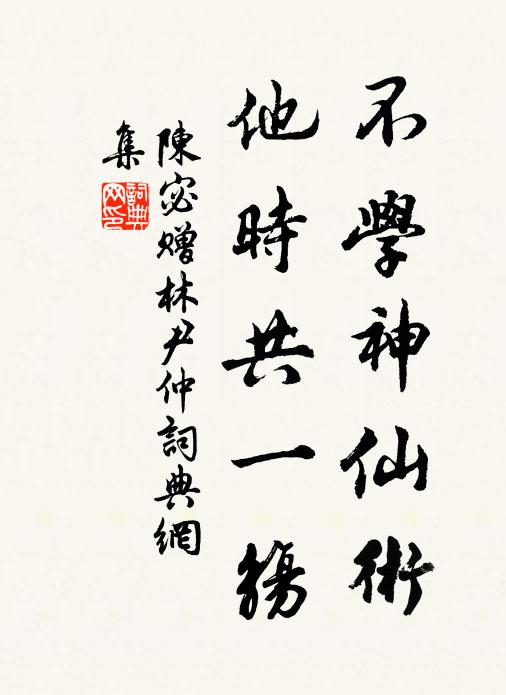 不學神仙術
他時共一觴
陳宓贈林尹仲詞典網
集
詞典網印